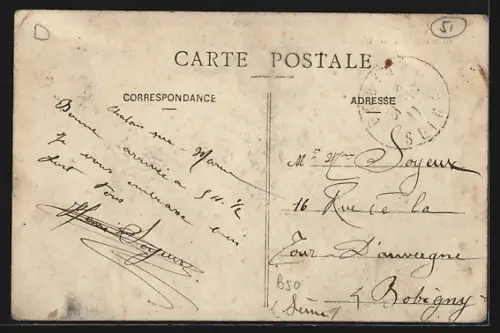 D
51
CARTE POSTALE
CORRESPONDANCE
Chalons sur Marne
Bonne arrivée à 5 H ½
Je vous embrasse bien
fort tous
Soyeux
ADRESSE
SEINE
Mr Mme Soyeux
16 Rue de la
Tour D'auvergne
à Bobigny
(Seine)
B50